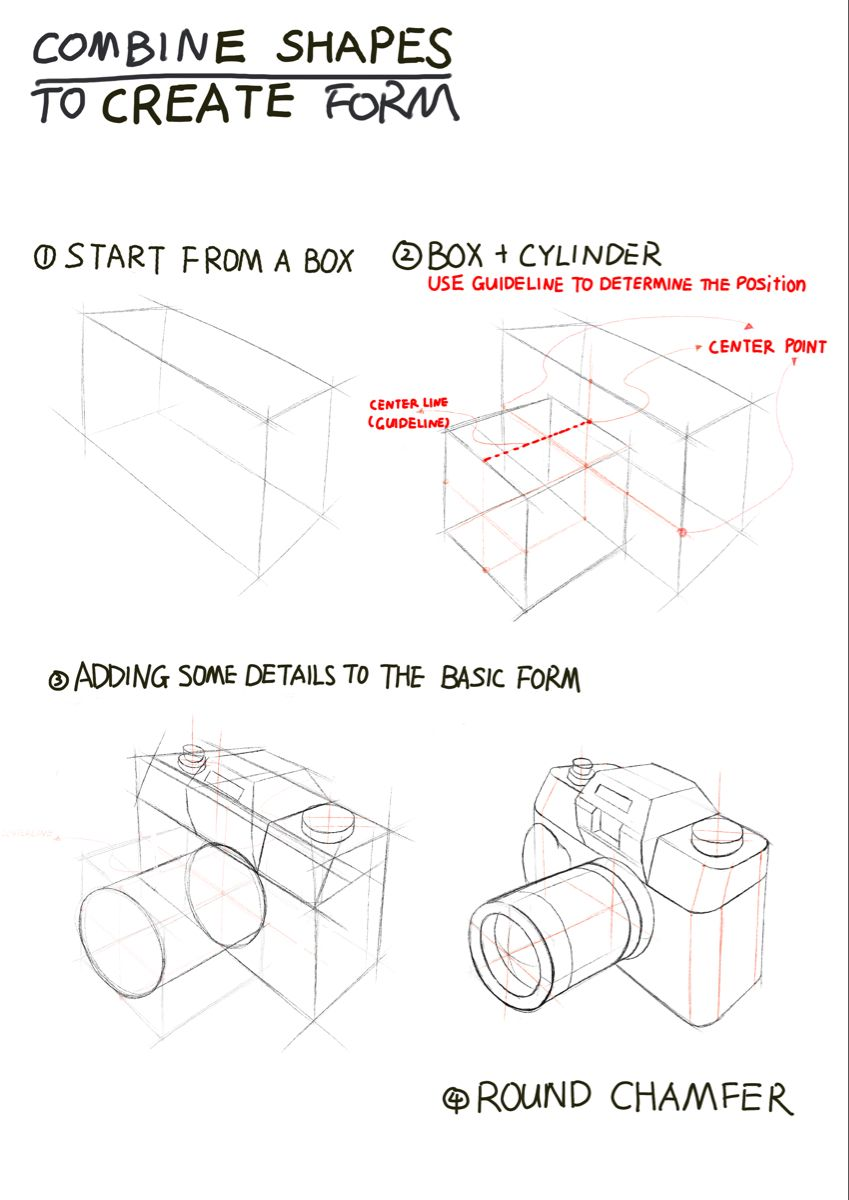 COMBINE SHAPES
TO CREATE FORM
① START FROM A BOX
② BOX + CYLINDER
USE GUIDELINE TO DETERMINE THE POSITION
CENTER POINT
CENTER LINE
(GUIDELINE)
③ ADDING SOME DETAILS TO THE BASIC FORM
④ ROUND CHAMFER